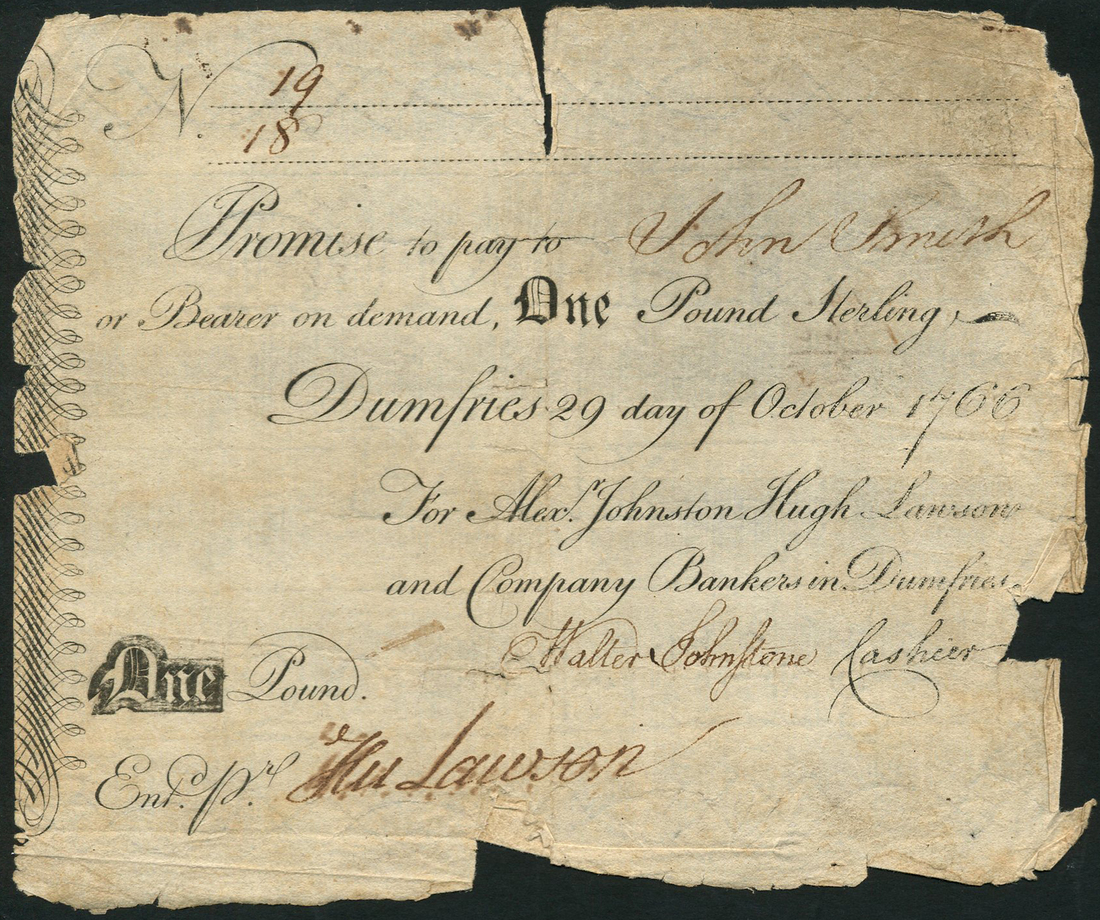 No. 19
18
Promise to pay to John Smith
or Bearer on demand, One Pound Sterling,
Dumfries 29 day of October 1766
For Alexr. Johnston Hugh Lawson
and Company Bankers in Dumfries.
Walter Johnstone Cashier
One Pound.
Entd. pr. Hu Lawson